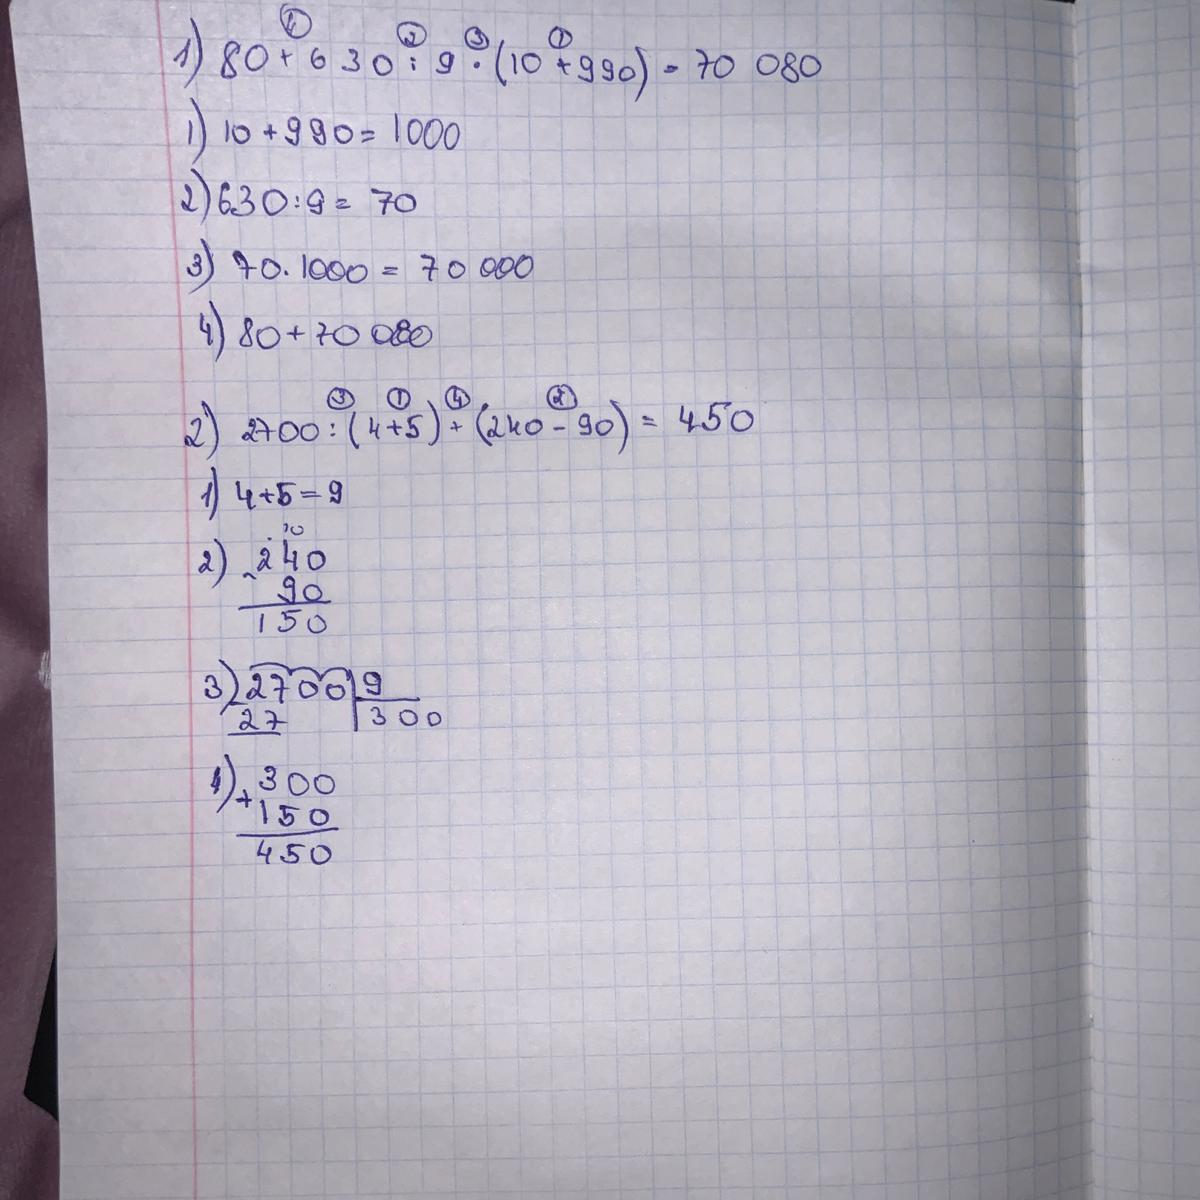 ④ ② ③ ①
1) 80 + 630 : 9 · (10 + 990) = 70 080
1) 10 + 990 = 1000
2) 630 : 9 = 70
3) 70 · 1000 = 70 000
4) 80 + 70 080
③ ① ④ ②
2) 2700 : (4 + 5) + (240 - 90) = 450
1) 4 + 5 = 9
. 10
2) - 240
90
150
3) - 2700 | 9
27 | 300
4) + 300
150
450